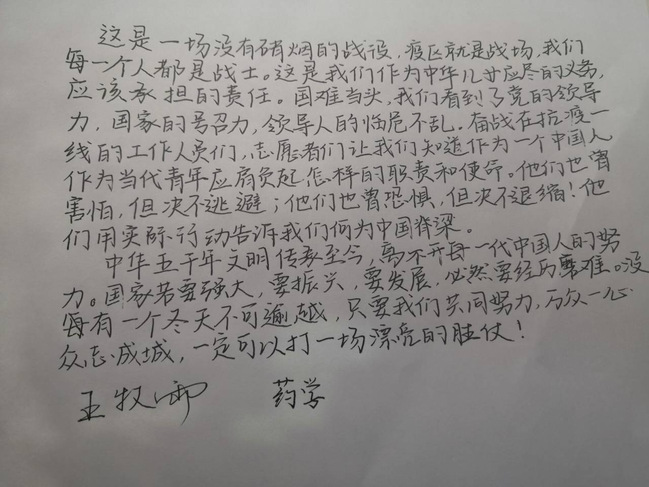 这是一场没有硝烟的战役，疫区就是战场，我们
每一个人都是战士。这是我们作为中华儿女应尽的义务，
应该承担的责任。国难当头，我们看到了党的领导
力，国家的号召力，领导人的临危不乱。奋战在抗疫一
线的工作人员们，志愿者们让我们知道作为一个中国人
作为当代青年应肩负起怎样的职责和使命。他们也曾
害怕，但决不逃避；他们也曾恐惧，但决不退缩！他
们用实际行动告诉我们何为中国脊梁。
中华五千年文明传承至今，离不开每一代中国人的努
力。国家若要强大，要振兴，要发展，必然要经历磨难。没
每有一个冬天不可逾越，只要我们共同努力，万众一心
众志成城，一定可以打一场漂亮的胜仗！
王牧雨 药学